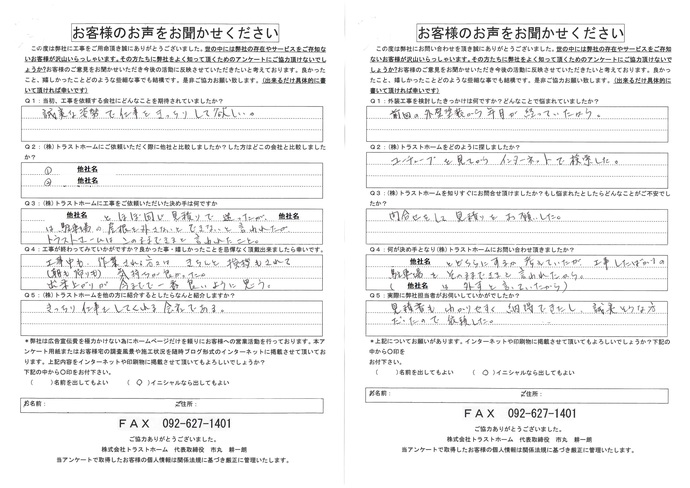 お客様のお声をお聞かせください
この度は弊社に工事をご用命頂き誠にありがとうございました。世の中には弊社の存在やサービスをご存知
ないお客様が沢山いらっしゃいます。その方たちに弊社をよく知って頂くためのアンケートにご協力頂けないで
しょうか?お客様のご意見をお聞かせいただき今後の活動に反映させていただきたいと考えております。良かっ
たこと、嬉しかったことなどのような些細な事でも結構です。是非ご協力お願い致します。(出来るだけ具体的に
書いて頂ければ幸いです)
Q1:当初、工事を依頼する会社にどんなことを期待されていましたか?
誠実な姿勢で仕事をきっちりして欲しい。
Q2:(株)トラストホームにご依頼いただく際に他社と比較しましたか?した方はどこの会社と比較しました
か?
① 他社名
② 他社名
Q3:(株)トラストホームに工事をご依頼いただいた決め手は何ですか
他社名 とほぼ同じ見積りで迷ったが、 他社名
は駐車場の屋根を外さないとできないと言われたが
トラストホームはこのままできると言われたこと。
Q4:工事が終わってみていかがですか?良かった事・嬉しかったことを忌憚なく頂戴出来ましたら幸いです。
工事中も、作業される方々はきちんと挨拶もされて
(朝も帰りも) 気持ちが良かった。
出来上がりが今までで一番良いように思う。
Q5:(株)トラストホームを他の方に紹介するとしたらなんと紹介しますか?
きっちり仕事をしてくれる会社である。
*弊社は広告宣伝費を極力かけない為にホームページだけを頼りにお客様への営業活動を行っております。本ア
ンケート用紙またはお客様宅の調査風景や施工状況を随時ブログ形式のインターネットに掲載させて頂いてお
ります。上記内容をインターネットや印刷物に掲載させて頂いてもよろしいでしょうか?
下記の中から○印をお付け下さい。
( )名前を出してもよい ( ○ )イニシャルなら出してもよい
お名前: ご住所:
FAX 092-627-1401
ご協力ありがとうございました。
株式会社トラストホーム 代表取締役 市丸 耕一朗
当アンケートで取得したお客様の個人情報は関係法規に基づき厳正に管理いたします。
お客様のお声をお聞かせください
この度は弊社にお問い合わせを頂き誠にありがとうございました。世の中には弊社の存在やサービスをご存知
ないお客様が沢山いらっしゃいます。その方たちに弊社をよく知って頂くためのアンケートにご協力頂けないで
しょうか?お客様のご意見をお聞かせいただき今後の活動に反映させていただきたいと考えております。良かっ
たこと、嬉しかったことなどのような些細な事でも結構です。是非ご協力お願い致します。(出来るだけ具体的に
書いて頂ければ幸いです)
Q1:外装工事を検討したきっかけは何ですか?どんなことで悩まれていましたか?
前回の外壁塗装から年月が経っていたから。
Q2:(株)トラストホームをどのように探しましたか?
ユーチューブを見てから インターネットで検索した。
Q3:(株)トラストホームを知りすぐにお問合せ頂けましたか?もし悩まれたとしたらどんなことがご不安でし
たか?
問合せをして見積りをお願いした。
Q4:何が決め手となり(株)トラストホームにお問い合わせ頂きましたか?
他社名 とどちらにするか考えていたが、工事したばかりの
駐車場をそのままでできると言われたから。
( 他社名 は外すと言っていたから)
Q5:実際に弊社担当者がお伺いしていかがでしたか?
見積書もわかりやすく納得できたし、誠実そうな方
だったので依頼した。
*上記についてお願いがあります。インターネットや印刷物に掲載させて頂いてもよろしいでしょうか?下記の
中から○印を
お付け下さい。
( )名前を出してもよい ( ○ )イニシャルなら出してもよい
お名前: ご住所:
FAX 092-627-1401
ご協力ありがとうございました。
株式会社トラストホーム 代表取締役 市丸 耕一朗
当アンケートで取得したお客様の個人情報は関係法規に基づき厳正に管理いたします。